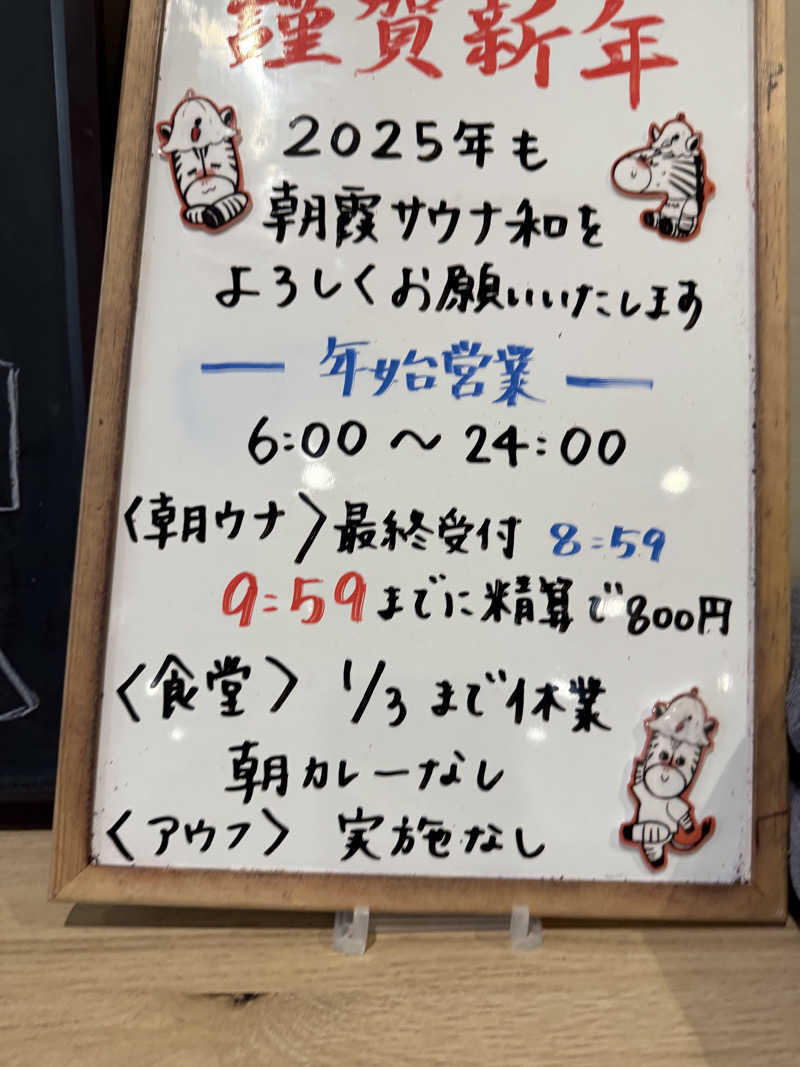 謹賀新年
2025年も
朝霞サウナ和を
よろしくお願いいたします
年始営業
6:00〜24:00
〈朝ウナ〉最終受付 8:59
9:59までに精算で800円
〈食堂〉1/3まで休業
朝カレーなし
〈アウフ〉実施なし